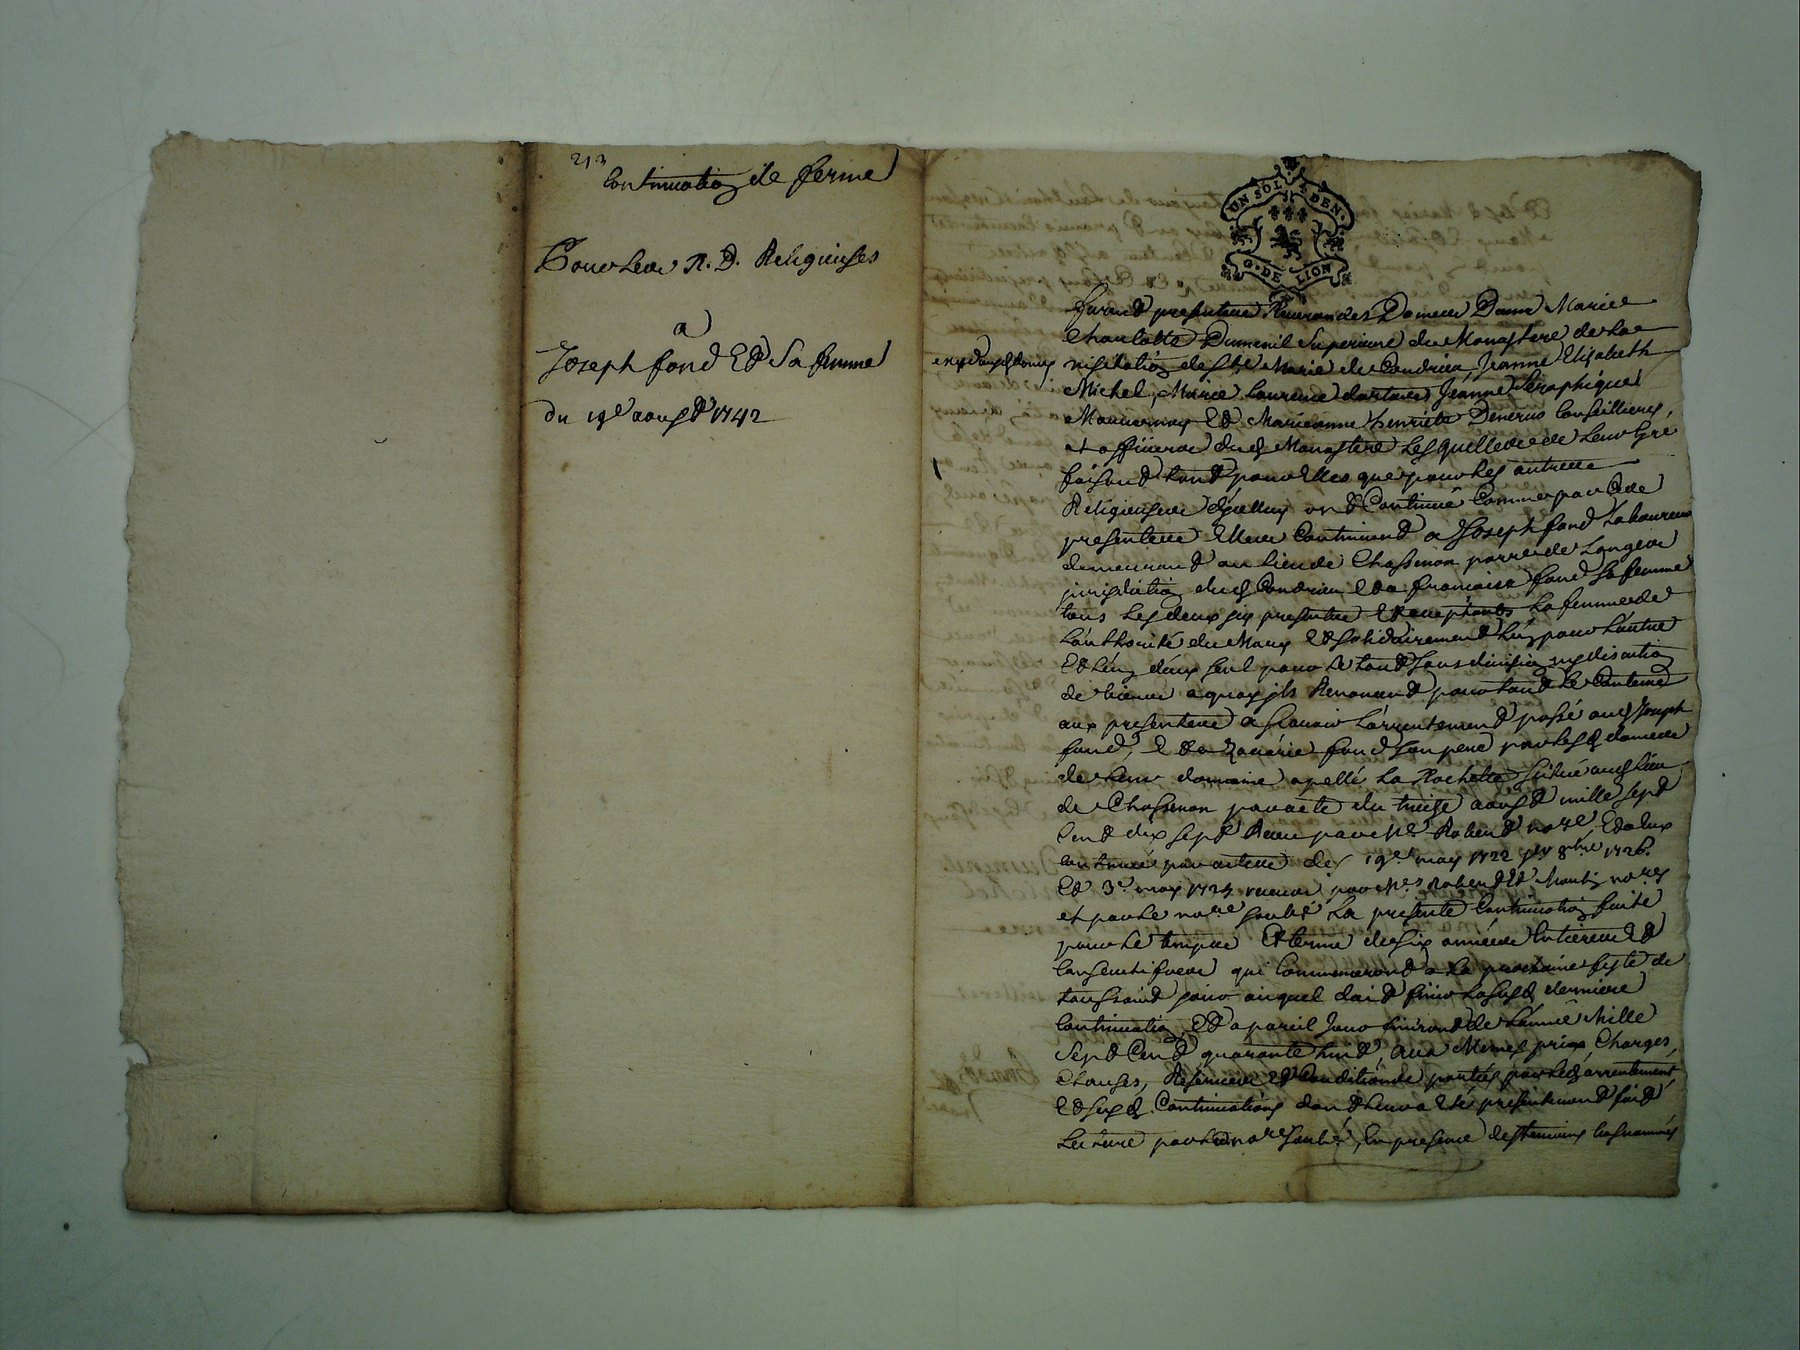 213
Continuation de ferme
Pour Les R. D. Religieuses
a
Joseph fond Et Sa femme
du 19e aoust 1742
UN SOL 4 DEN.
G. DE LION
furent presentes Reverandes Dames Dame Marie
Charlotte Dumenil Superieure du Monastere de La
visitation de Ste Marie de Condrieu, Jeanne Elizabeth
Michel, Marie Laurence dartaud, Jeanne Seraphique
Et Marieanne henriette Deneros Conseillieres,
et officieres dud Monastere Lesquelles de Leur Gré
faisant tant pour Elles que pour Les autres
Religieuses d'jcelluy ont Continué Comme par Ces
presentes Elles Continuent a Joseph fond Laboureur
demeurant au lieu de Chassenon parr. de Longes
jurisdiction dud Condrieu Et a francoise fond Sa femme
tous Les deux jcy presents Et acceptants La femme de
L'authorité du Mary Et Solidairement L'un pour L'autre
Et L'un d'eux seul pour Le tout Sans division ny discution
de biens a quoy jls Renoncent pour tout Le Contenu
aux presentes a Scavoir L'arrentement passé aud Joseph
fond, Et a Zacarie fond Son pere par Lesd dames
de Leur domaine apellé La Rochette Situé aud Lieu
de Chassenon par acte du treize aoust mille sept
Cent dix sept Receu par Me Robert nore Et a Eux
Continué par actes des 19e may 1722 8bre 1726
Et 3e may receus par Mes Robert Et nores
et par Le nore Soubsé La presente Continuation faite
pour Le temps Et terme de Six années Entieres Et
Consecutives qui Commenceront a La prochaine feste de
toussaint jour auquel doit finir La susd derniere
Continuation Et a pareil Jour finiront de L'année Mille
Sept Cent quarante huit, aux Mesmes prix Charges,
Clauses, Reserves Et Conditions portées par Led arrentement
Et susd Continuations dont Leur a Eté presentement fait
Lecture par Led nore Soubsé, En presence des temoins bas nommés